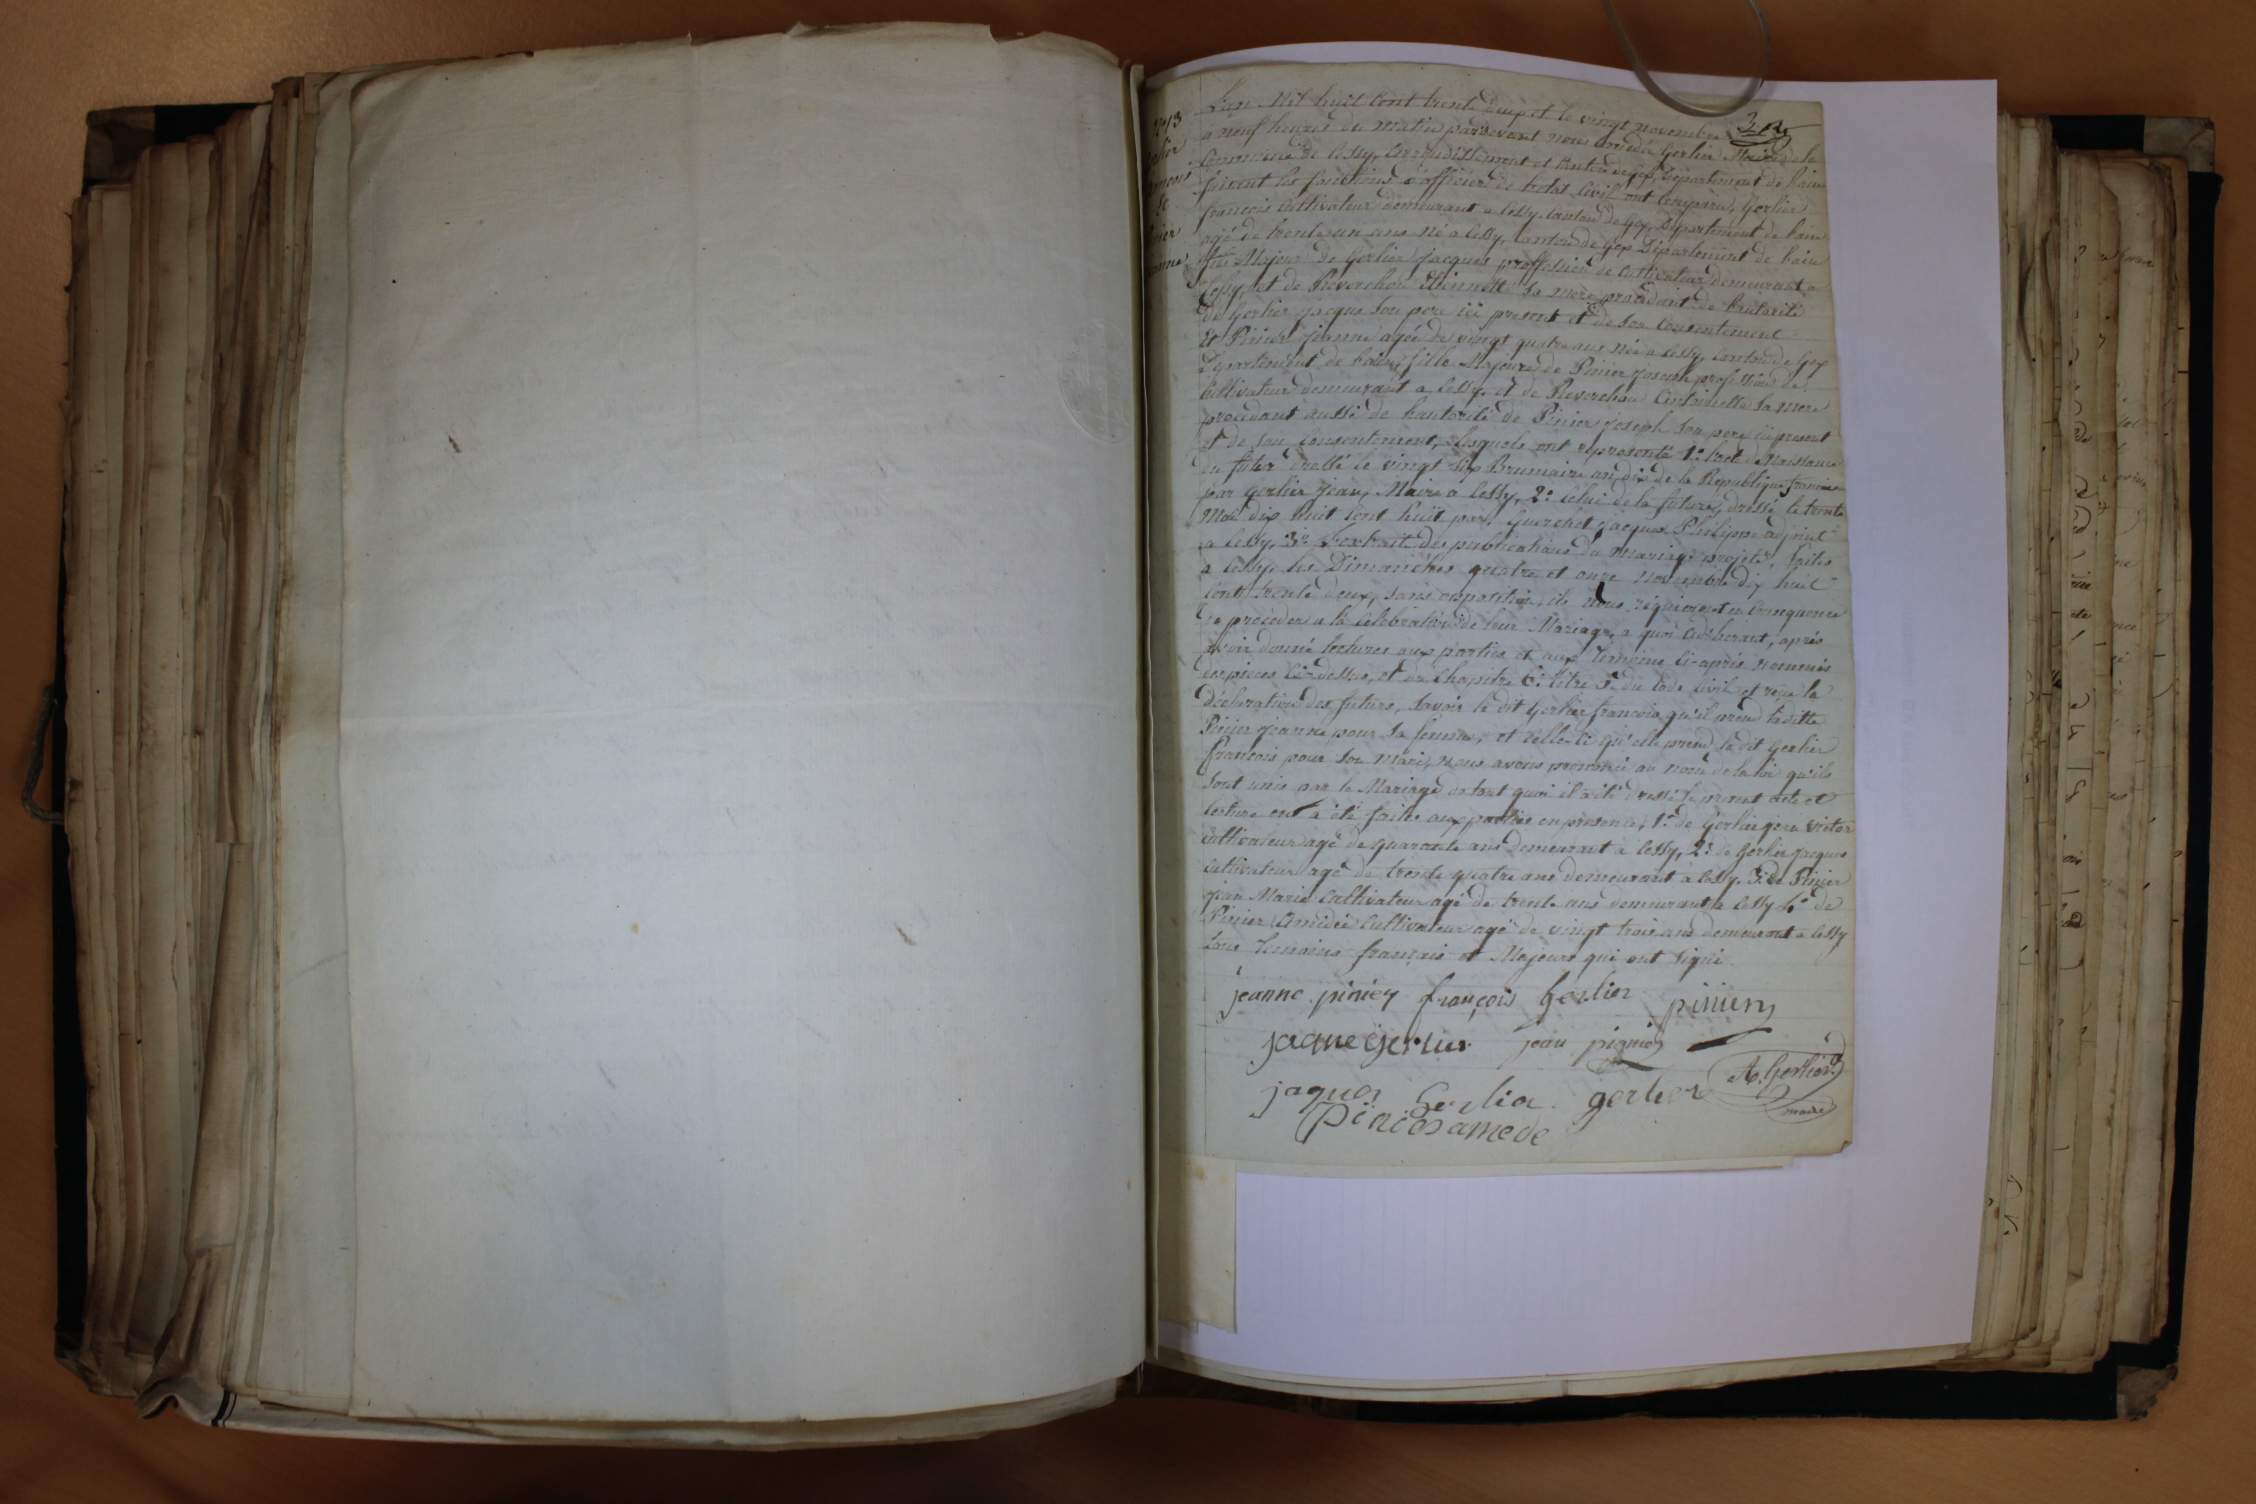 L'an Mil huit Cent trente deux et le vingt novembre
a neuf heures du matin pardevant nous Amédé Gerlier Maire de la
Commune de Cessy, Arrondissement et Canton de gex, Département de l'ain
faisant les fonctions d'officier de l'etat Civil ont Comparu, Gerlier
françois Cultivateur demeurant a Cessy Canton de Gex, Département de l'ain
agé de trente un ans né a Cessy, Canton de Gex Département de l'ain
fils Majeur de Gerlier Jacques proffession de Cultivateur demeurant a
Cessy, et de Reverchon Etiennette sa mere procédant de l'autorité
de Gerlier Jacque son pere ici present et de son Consentement
Et Pinier Jeanne agée de vingt quatre ans née a Cessy, Canton de Gex
Département de l'ain, fille Majeure de Pinier Joseph profession de
Cultivateur demeurant a Cessy, et de Reverchon Antoinette sa mere
procedant aussi de l'autorité de Pinier Joseph son pere ici present
et de son Consentement, lesquels ont représenté 1.° l'acte de Naissance
du futur dressé le vingt six Brumaire an dix de la République française
par Gerlier Jean, Maire a Cessy, 2.° celui de la future, dressé le trente
Mai dix huit Cent huit par Guerchet Jacques Philippe adjoint
a Cessy, 3.° l'extrait des publications du mariage projeté, faites
a Cessy les Dimanches quatre et onze novembre dix huit
Cent trente deux, sans opposition, ils nous requierent en Conséquence
de procéder a la Célébration de leur Mariage, a quoi adhérant, après
avoir donné lectures aux parties et aux Témoins Ci-après nommés
des pieces Ci-dessus, et du Chapitre 6.e titre 5.e du Code Civil et reçu la
Déclaration des futurs, Savoir le dit Gerlier francois qu'il prend ladite
Pinier Jeanne pour sa femme, et Celle-Ci qu'elle prend le dit Gerlier
François pour son mari, nous avons prononcé au nom de la loi qu'ils
sont unis par le Mariage de tout quoi il a été dressé le present acte et
lecture en a été faites aux parties en presence, 1.° de Gerlier Jean victor
Cultivateur agé de quarante ans demeurant a Cessy, 2.° de Gerlier Jacques
Cultivateur agé de trente quatre ans demeurant a Cessy, 3.° de Pinier
Jean Marie Cultivateur agé de trente ans demeurant a Cessy 4.° de
Pinier Amédée Cultivateur agé de vingt trois ans demeurant a Cessy
tous témoins français et Majeurs qui ont signé.
jeanne pinier françois Gerlier pinier
jaque Gerlier jean pignier
A. Gerlier
maire
jaques Gerlier gerlier
Pinier amede